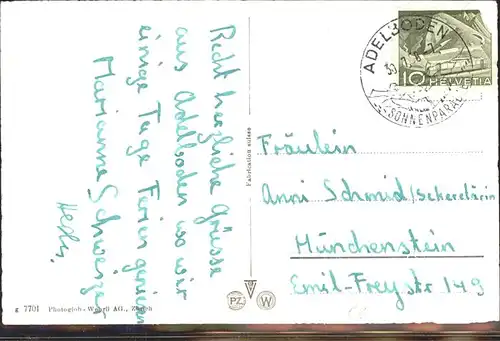 Recht herzliche Grüsse
aus Adelboden wo wir
einige Tage Ferien geniessen
Marianne Schweizer
ADELBODEN
SONNENPARAD
10 HELVETIA
Fräulein
Anni Schmid/Sekretärin
Münchenstein
Emil-Freystr 149
Fabrication suisse
PZ W
g 7701 Photoglob-Wehrli AG., Zürich